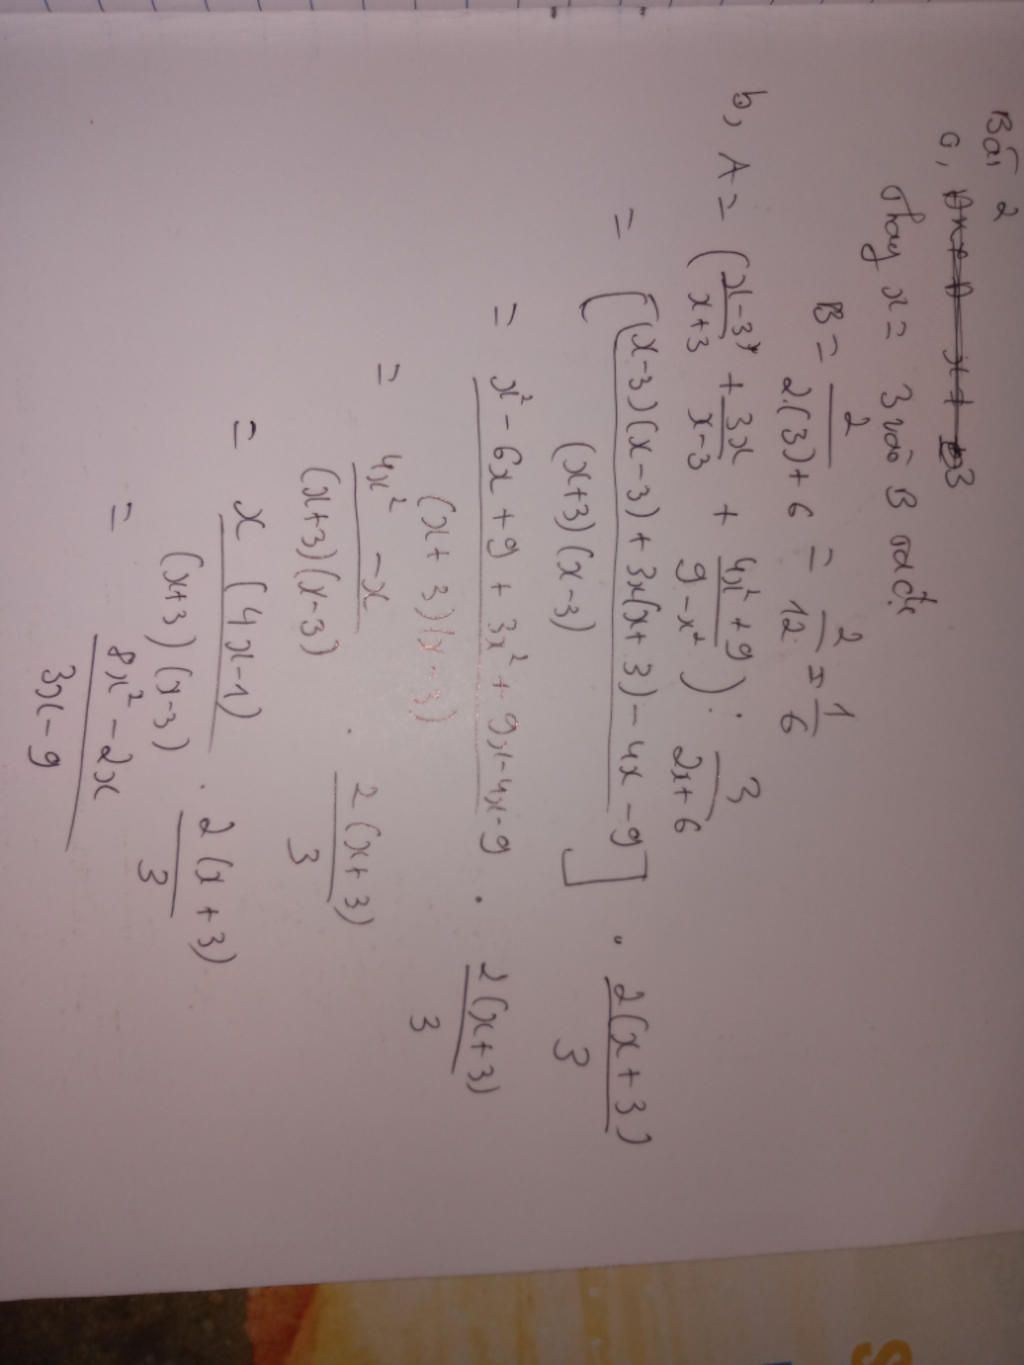 Bài 2
a,
Thay x = 3 vào B ta đc
B = 2 / 2.(3)+6 = 2/12 = 1/6
b, A = ( x-3/x+3 + 3x/x-3 + 4x²+9/9-x² ) : 3/2x+6
= [ (x-3)(x-3)+3x(x+3)-4x-9 / (x+3)(x-3) ] . 2(x+3)/3
= x²-6x+9+3x²+9x-4x-9 / (x+3)(x-3) . 2(x+3)/3
= 4x²-x / (x+3)(x-3) . 2(x+3)/3
= x(4x-1) / (x+3)(x-3) . 2(x+3)/3
= 8x²-2x / 3x-9
S